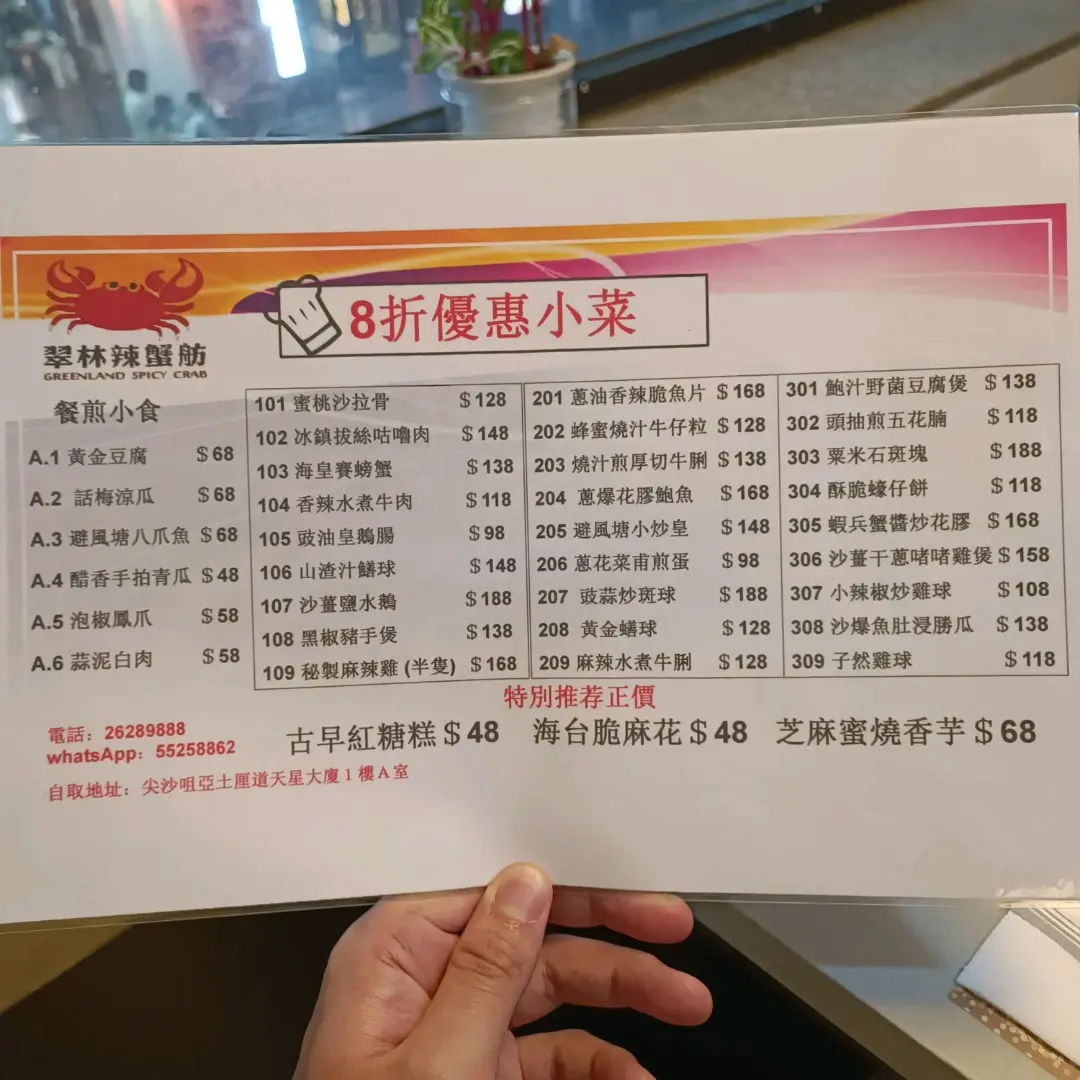 8折優惠小菜
翠林辣蟹舫
GREENLAND SPICY CRAB
餐煎小食
A.1 黃金豆腐 $68
A.2 話梅涼瓜 $68
A.3 避風塘八爪魚 $68
A.4 醋香手拍青瓜 $48
A.5 泡椒鳳爪 $58
A.6 蒜泥白肉 $58
101 蜜桃沙拉骨 $128
102 冰鎮拔絲咕嚕肉 $148
103 海皇賽螃蟹 $138
104 香辣水煮牛肉 $118
105 豉油皇鵝腸 $98
106 山渣汁鱔球 $148
107 沙薑鹽水鵝 $188
108 黑椒豬手煲 $138
109 秘製麻辣雞 (半隻) $168
201 蔥油香辣脆魚片 $168
202 蜂蜜燒汁牛仔粒 $128
203 燒汁煎厚切牛脷 $138
204 蔥爆花膠鮑魚 $168
205 避風塘小炒皇 $148
206 蔥花菜甫煎蛋 $98
207 豉蒜炒斑球 $188
208 黃金蟮球 $128
209 麻辣水煮牛脷 $128
301 鮑汁野菌豆腐煲 $138
302 頭抽煎五花腩 $118
303 粟米石斑塊 $188
304 酥脆蠔仔餅 $118
305 蝦兵蟹醬炒花膠 $168
306 沙薑干蔥啫啫雞煲 $158
307 小辣椒炒雞球 $108
308 沙爆魚肚浸勝瓜 $138
309 子然雞球 $118
特別推荐正價
古早紅糖糕 $48 海台脆麻花 $48 芝麻蜜燒香芋 $68
電話：26289888
whatsApp：55258862
自取地址：尖沙咀亞土厘道天星大廈1樓A室